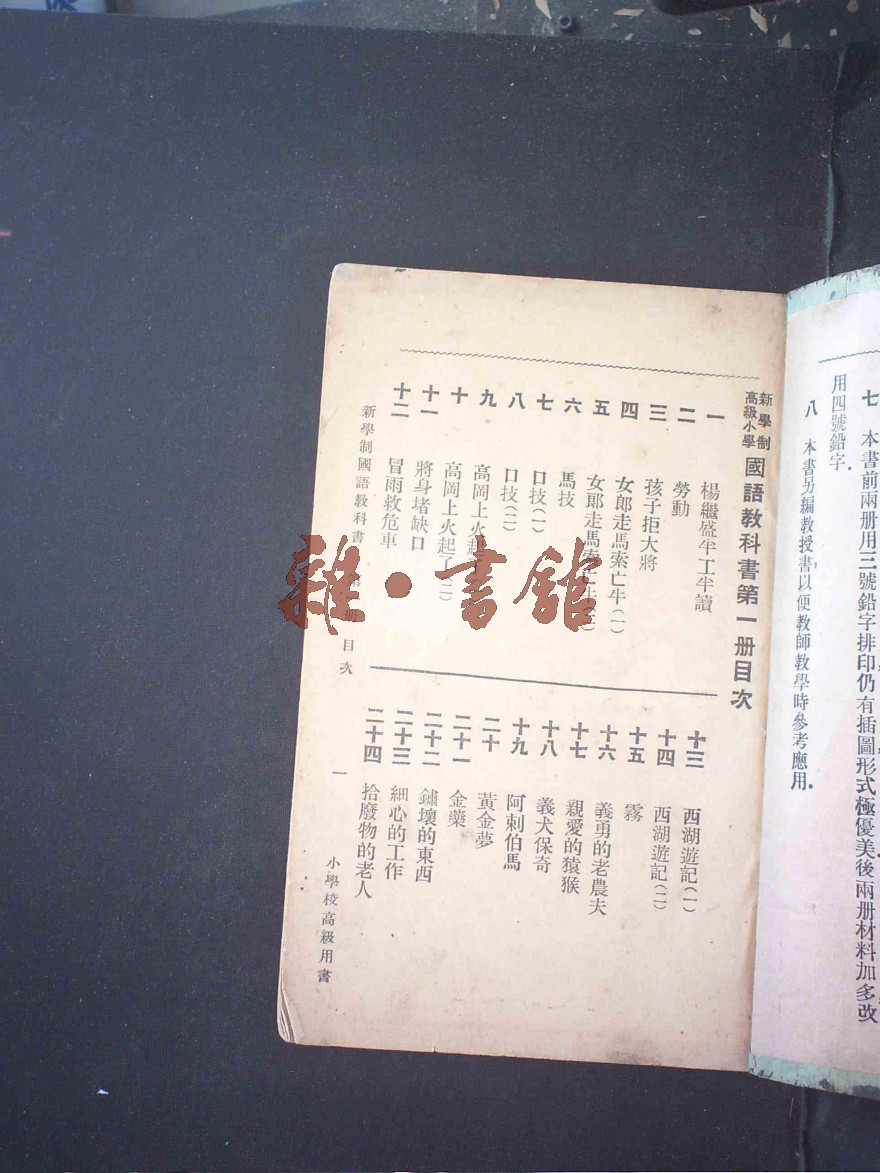 七　本書前兩册用三號鉛字排印仍有插圖形式極優美後兩册材料加多改
用四號鉛字．
八　本書另編教授書，以便教師教學時參考應用．
新學制
高級小學
國語教科書第一册目次
一　楊繼盛半工半讀
二　勞動
三　孩子拒大將
四　女郎走馬索亡牛(一)
五　女郎走馬索亡牛
六　馬技
七　口技(一)
八　口技(二)
九　高岡上火起
十　高岡上火起了(二)
十一　將身堵缺口
十二　冒雨救危車
十三　西湖遊記(一)
十四　西湖遊記(二)
十五　霧
十六　義勇的老農夫
十七　親愛的猿猴
十八　義犬保奇
十九　阿剌伯馬
二十　黃金夢
二十一　金藥
二十二　鏽壞的東西
二十三　細心的工作
二十四　拾廢物的老人
新學制國語教科書　第　册　目次
一
小學校高級用書
雜·書館